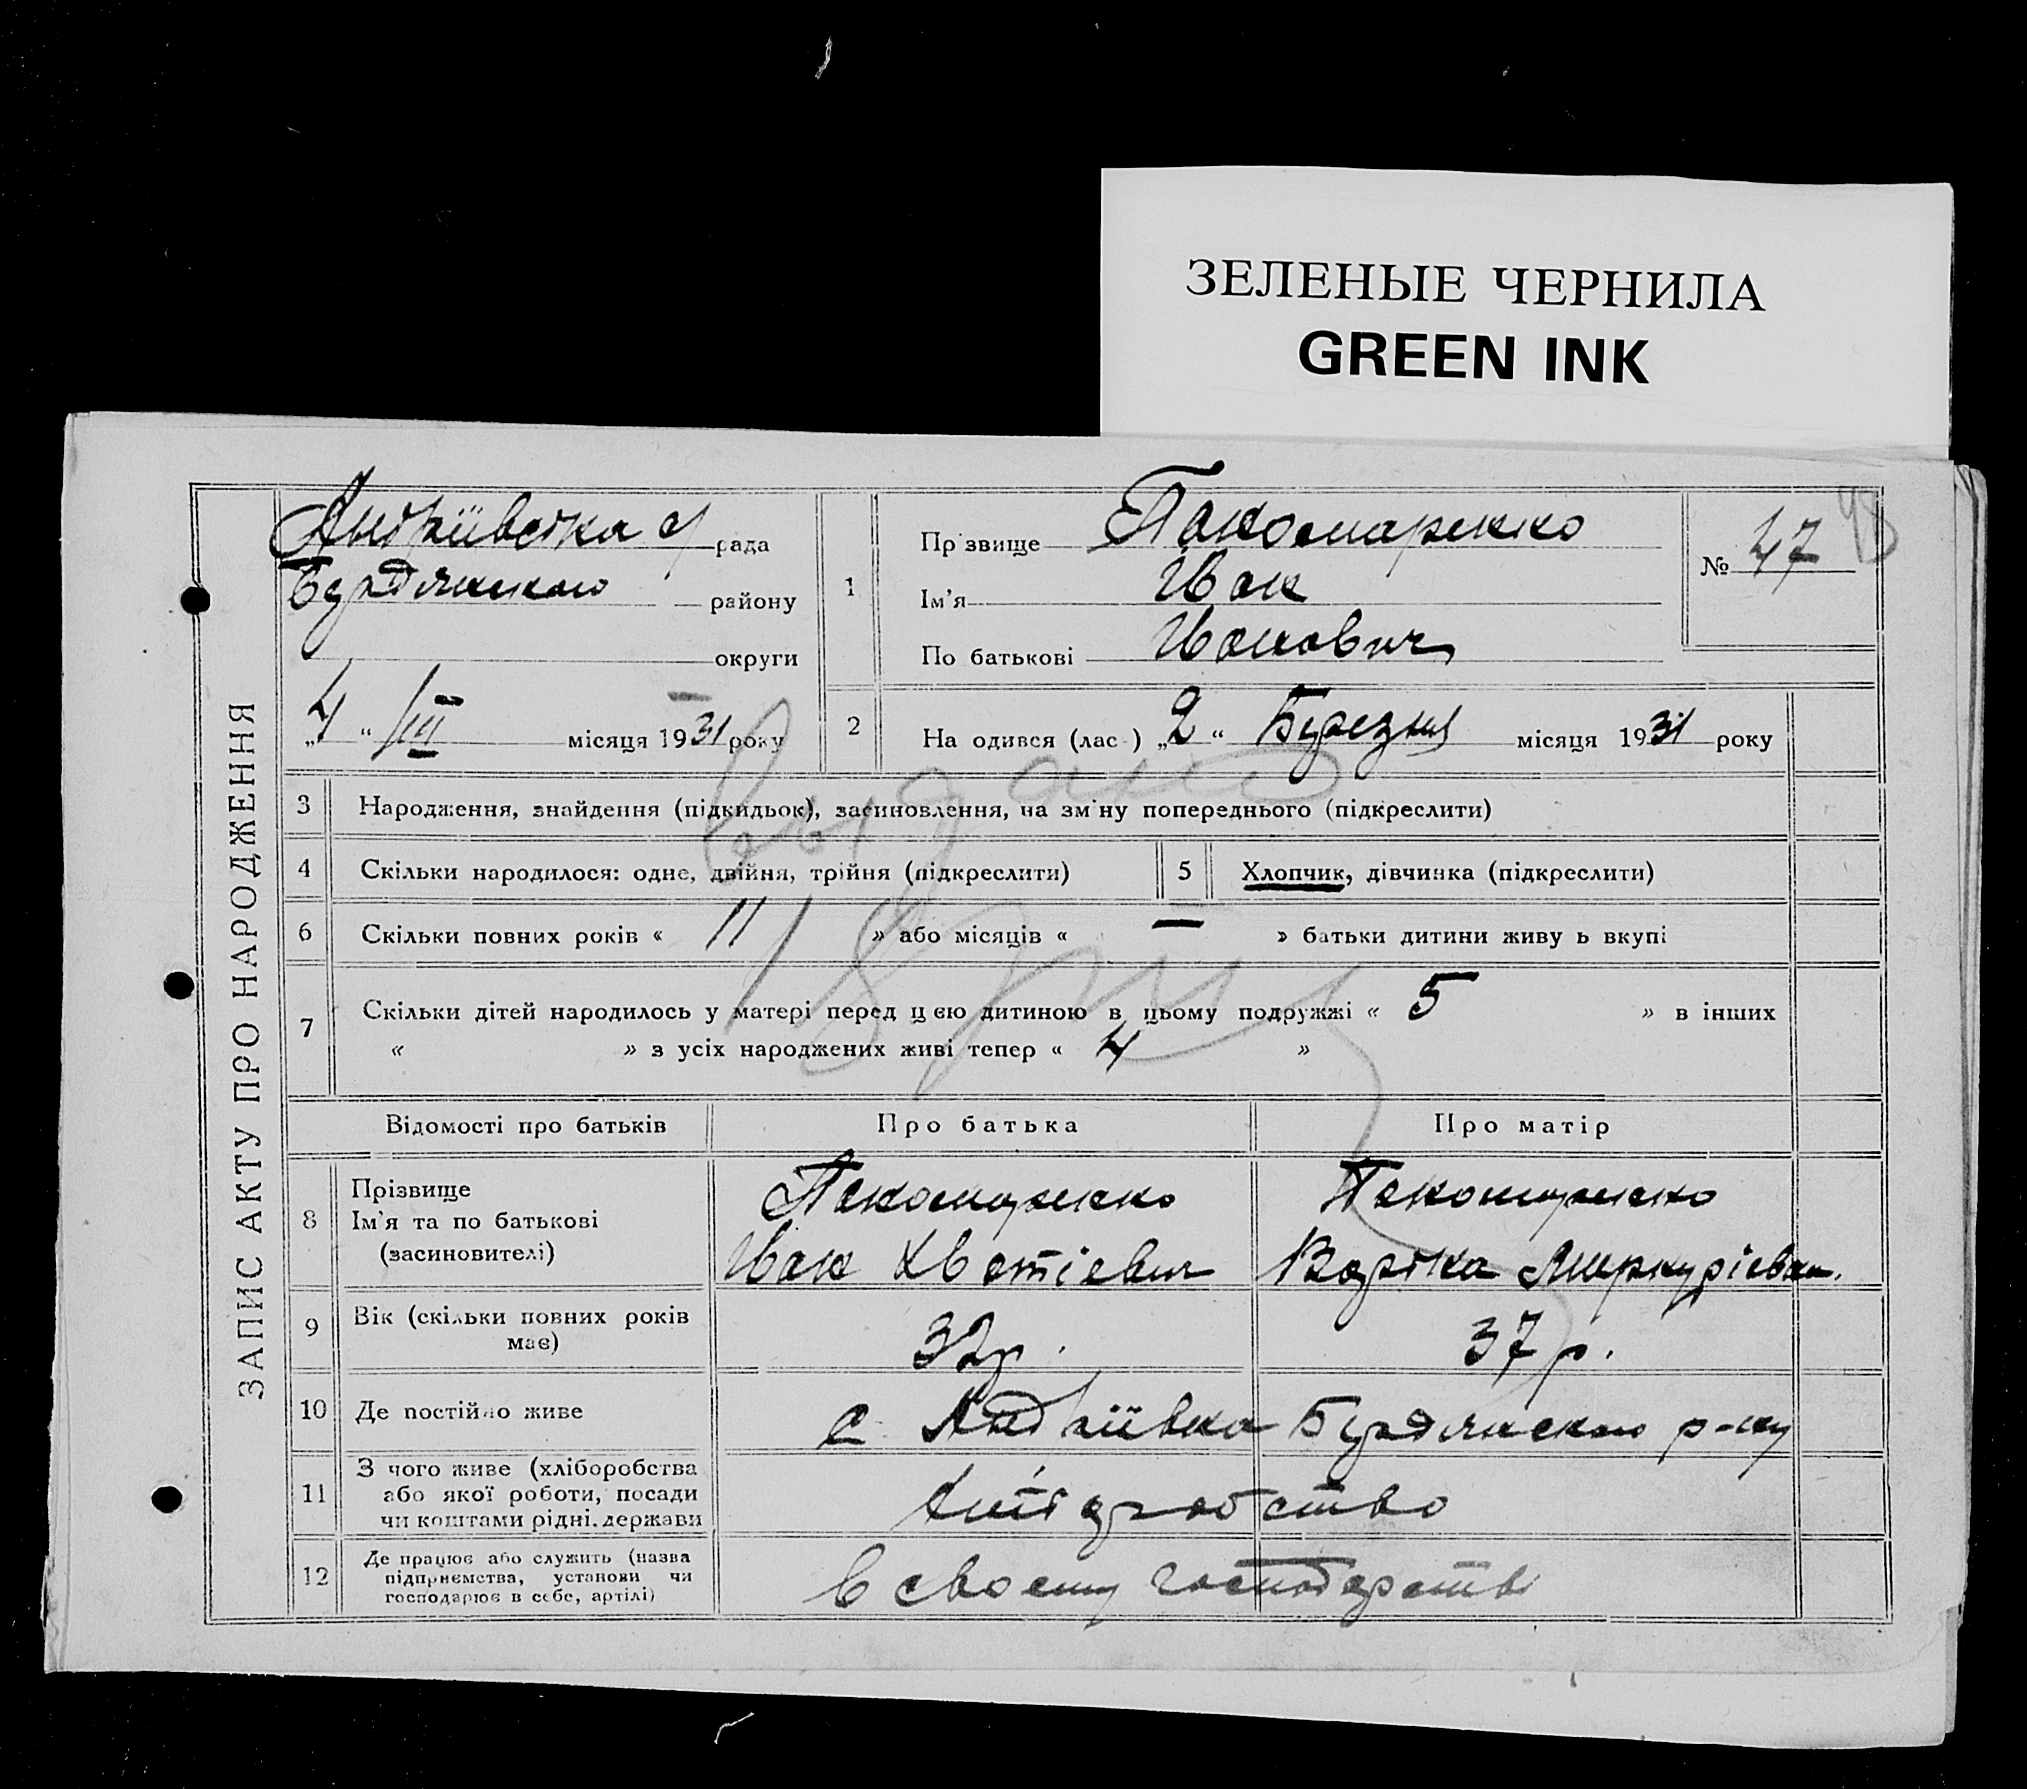 ЗЕЛЕНЫЕ ЧЕРНИЛА
GREEN INK
ЗАПИС АКТУ ПРО НАРОДЖЕННЯ
Андріївська с/рада
Бердянського району
округи
„4“ /III місяця 1931 року
1
Прізвище Пономаренко
Ім'я Іван
По батькові Іванович
№ 47
48
2
На одився (лас ) „2“ Березня місяця 1931 року
3 Народження, знайдення (підкидьок), засиновлення, на зміну попереднього (підкреслити)
4 Скільки народилося: одне, двійня, трійня (підкреслити)
5 Хлопчик, дівчинка (підкреслити)
6 Скільки повних років « 11 » або місяців « — » батьки дитини живу ь вкупі
7 Скільки дітей народилось у матері перед цією дитиною в цьому подружжі « 5 » в інших
« » з усіх народжених живі тепер « 4 »
Відомості про батьків Про батька Про матір
8 Прізвище
Ім'я та по батькові
(засиновителі)
Пономаренко
Іван Хвотієвич
Пономаренко
Варька Меркурієвн.
9 Вік (скільки повних років
має)
32 р. 37 р.
10 Де постійно живе с. Андріївка Бердянського р-ну
11 З чого живе (хліборобства
або якої роботи, посади
чи коштами рідні, держави
12 Де працює або служить (назва
підприємства, установи чи
господарює в себе, артілі)
в своему господарстві